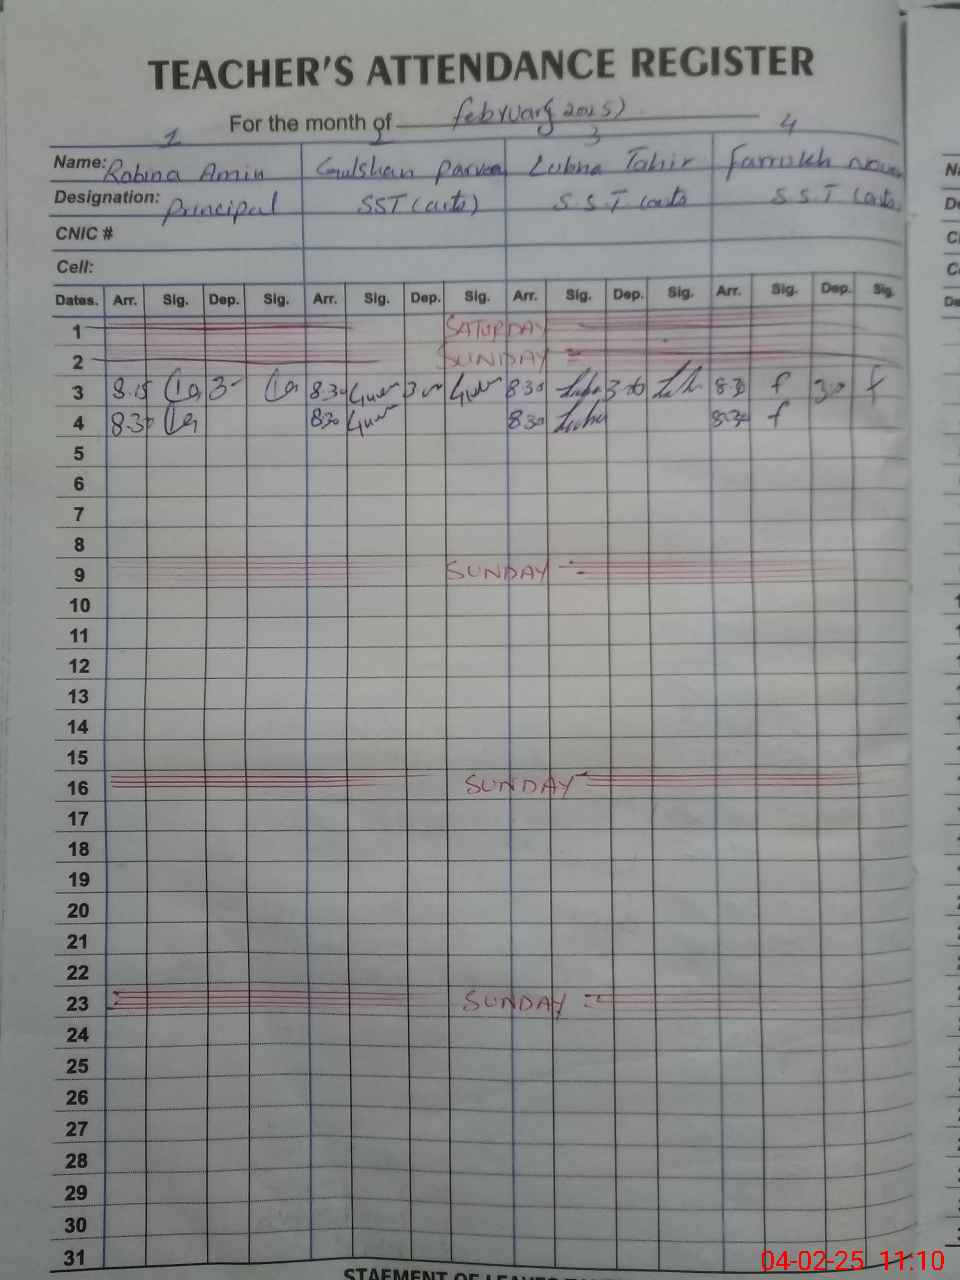 TEACHER'S ATTENDANCE REGISTER
For the month of february 2025)
1 2 3 4
Name: Robina Amin Gulshan Parveen Lubna Tahir Farrukh
Designation: Principal SST (arts) S.S.T (arts S.S.T (arts
CNIC #
Cell:
Dates. Arr. Sig. Dep. Sig. Arr. Sig. Dep. Sig. Arr. Sig. Dep. Sig. Arr. Sig. Dep. Sig.
1 SATURDAY
2 SUNDAY
3 8.15 3- 8.30 3 8 30 3 8.30 f 3 f
4 8.30 8.30 8 30 8.30 f
5
6
7
8
9 SUNDAY
10
11
12
13
14
15
16 SUNDAY
17
18
19
20
21
22
23 SUNDAY
24
25
26
27
28
29
30
31
04-02-25 11:10